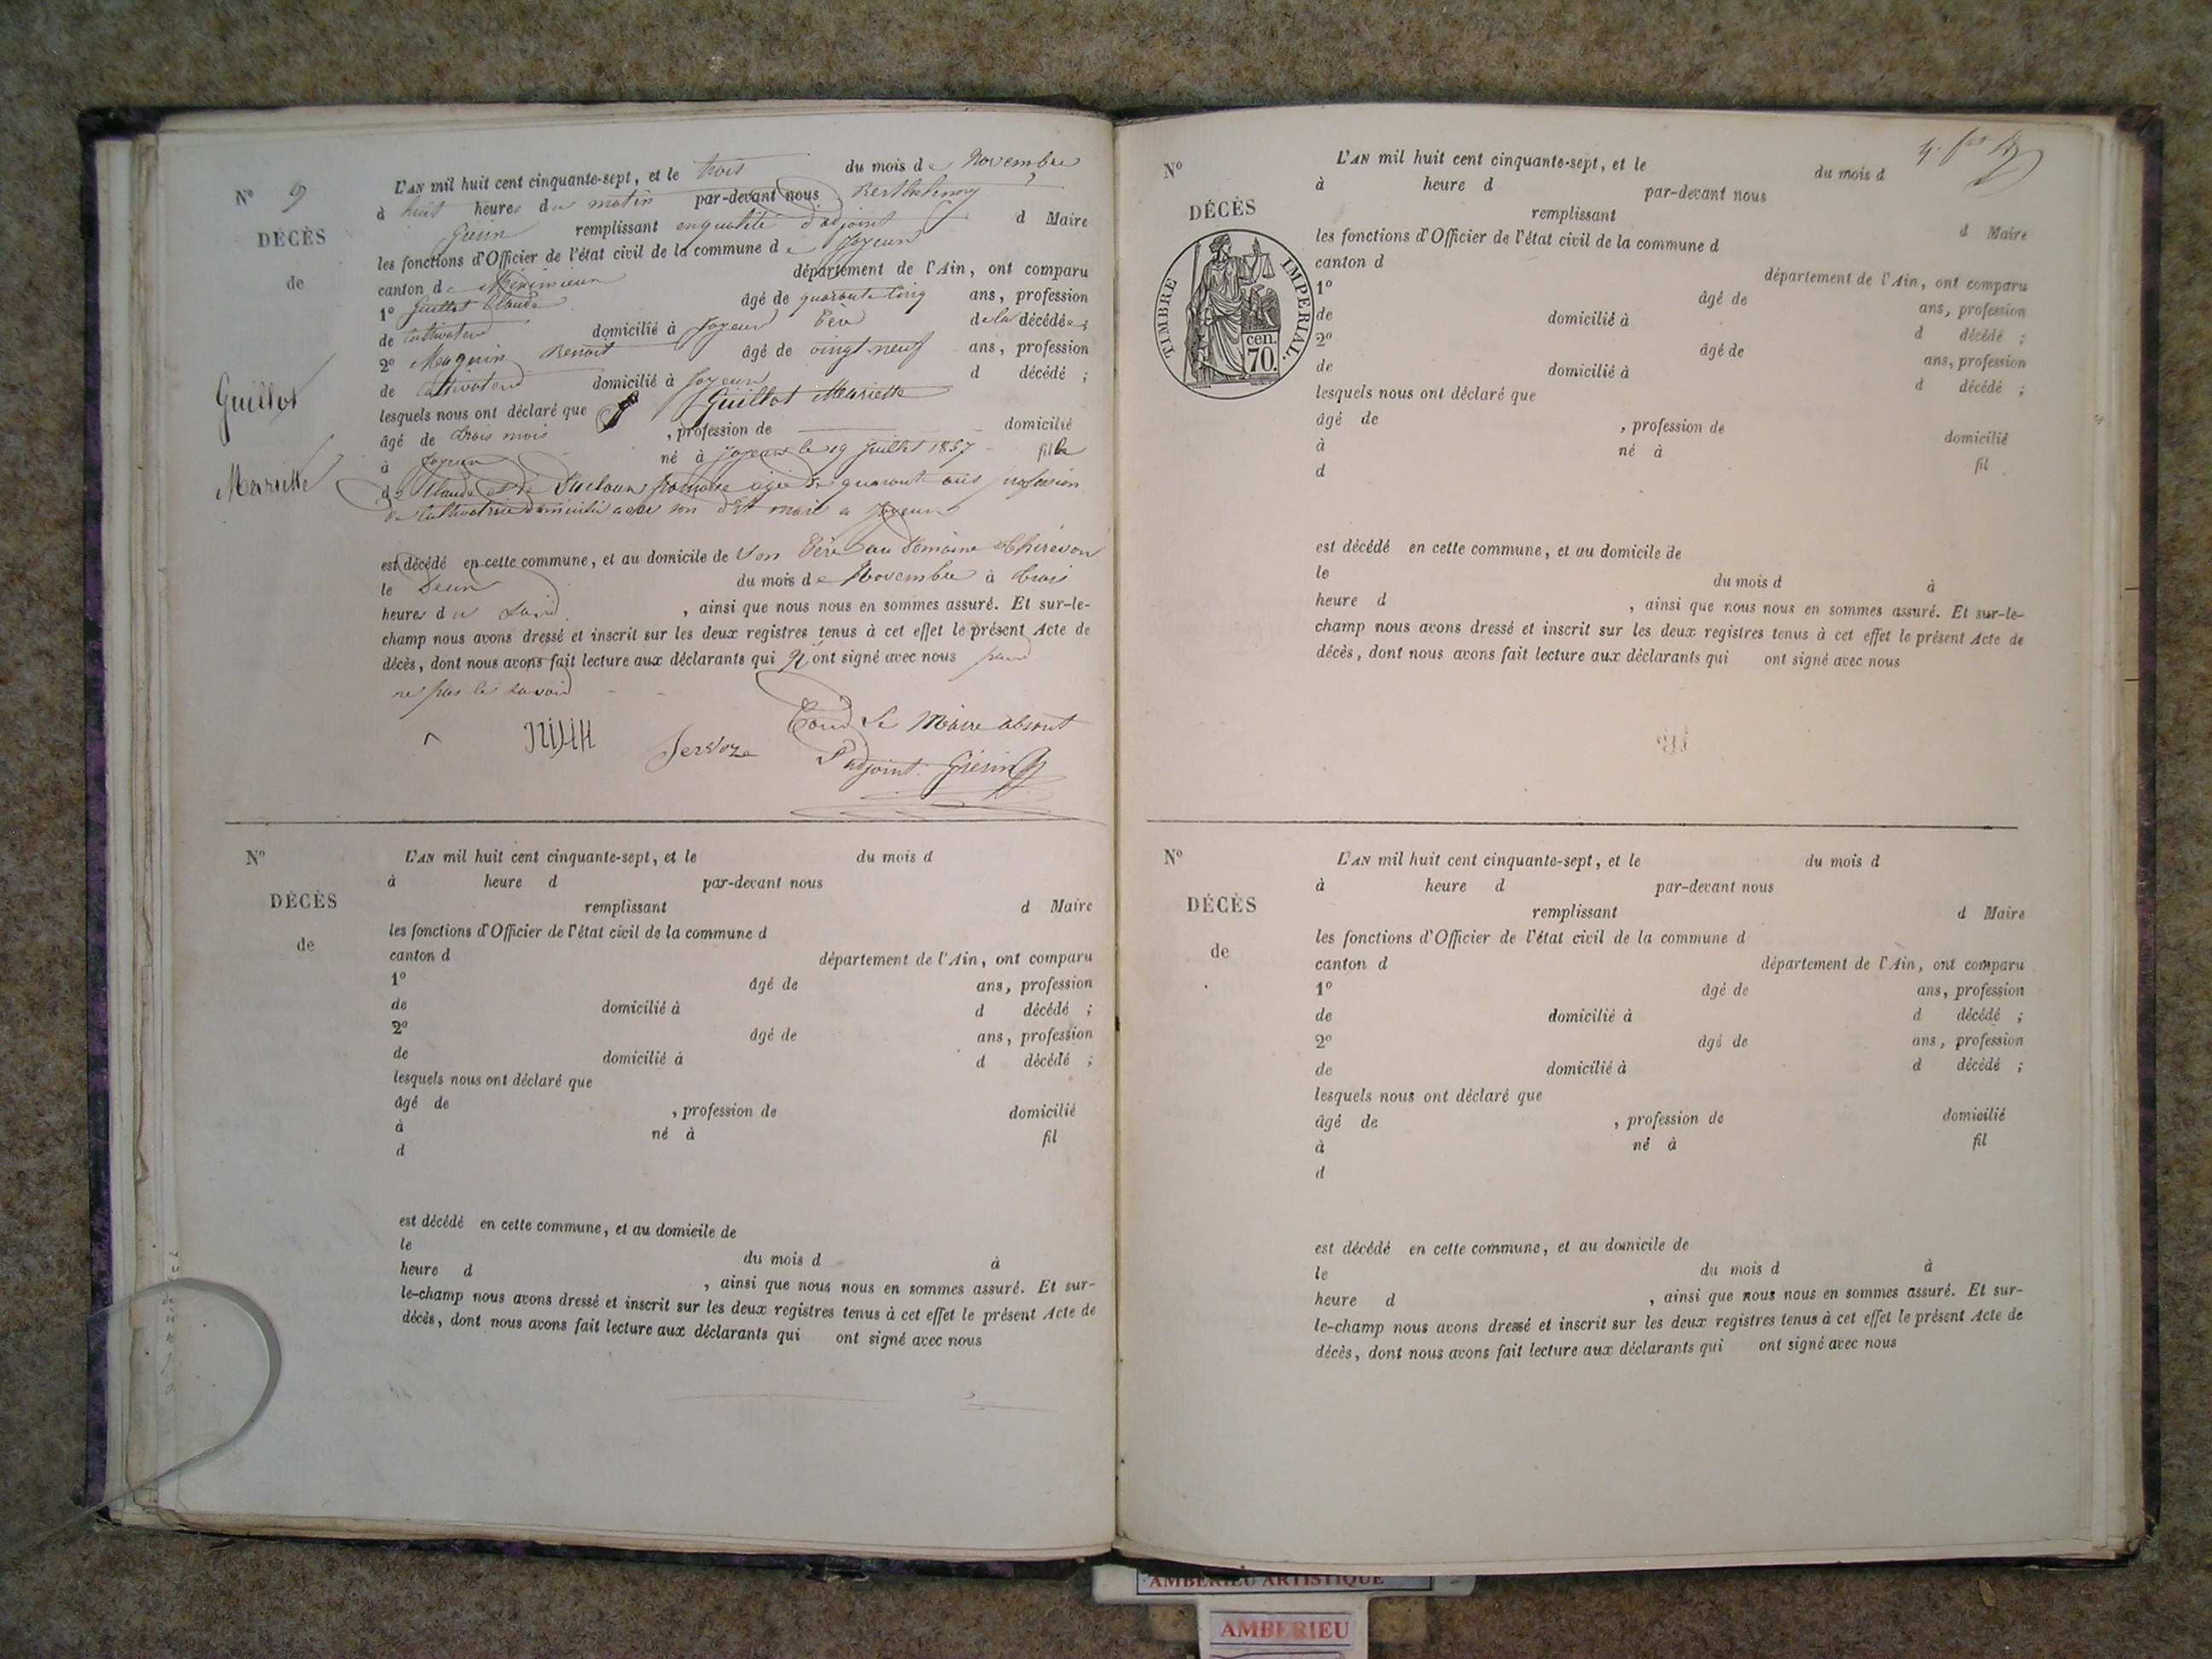 N° 9
DÉCÈS
de
Guillot
Mariette
L'AN mil huit cent cinquante-sept, et le trois du mois de Novembre
à huit heures du matin par-devant nous Berthelemy
Guérin remplissant en qualité d'adjoint d Maire
les fonctions d'Officier de l'état civil de la commune de Joyeux
canton de Meximieux département de l'Ain, ont comparu
1° Guillot Claude âgé de quarante cinq ans, profession
de Cultivateur domicilié à Joyeux Père de la décédée;
2° Maguin Benoit âgé de vingt neuf ans, profession
de Cultivateur domicilié à Joyeux d décédé ;
lesquels nous ont déclaré que Guillot Mariette
âgé de trois mois , profession de domicilié
à Joyeux né à Joyeux le 19 Juillet 1857 fille
de Claude et de françoise agée de quarant ans profession
de Cultivatrice domicilié avec son dit mari a Joyeux
est décédé en cette commune, et au domicile de son Père au domaine
le Deux du mois de Novembre à trois
heures du Soir , ainsi que nous nous en sommes assuré. Et sur-le-
champ nous avons dressé et inscrit sur les deux registres tenus à cet effet le présent Acte de
décès, dont nous avons fait lecture aux déclarants qui n'ont signé avec nous pour
ne pas le savoir
Pour Le Maire absent
L'adjoint Guérin
Servoz
N°
DÉCÈS
de
L'AN mil huit cent cinquante-sept, et le du mois d
à heure d par-devant nous
remplissant d Maire
les fonctions d'Officier de l'état civil de la commune d
canton d département de l'Ain, ont comparu
1° âgé de ans, profession
de domicilié à d décédé ;
2° âgé de ans, profession
de domicilié à d décédé ;
lesquels nous ont déclaré que
âgé de , profession de domicilié
à né à fil
d
est décédé en cette commune, et au domicile de
le du mois d à
heure d , ainsi que nous nous en sommes assuré. Et sur-
le-champ nous avons dressé et inscrit sur les deux registres tenus à cet effet le présent Acte de
décès, dont nous avons fait lecture aux déclarants qui ont signé avec nous
N°
DÉCÈS
TIMBRE IMPERIAL.
cen.
70.
L'AN mil huit cent cinquante-sept, et le du mois d
à heure d par-devant nous
remplissant d Maire
les fonctions d'Officier de l'état civil de la commune d
canton d département de l'Ain, ont comparu
1° âgé de ans, profession
de domicilié à d décédé ;
2° âgé de ans, profession
de domicilié à d décédé ;
lesquels nous ont déclaré que
âgé de , profession de domicilié
à né à fil
d
est décédé en cette commune, et au domicile de
le du mois d à
heure d , ainsi que nous nous en sommes assuré. Et sur-le-
champ nous avons dressé et inscrit sur les deux registres tenus à cet effet le présent Acte de
décès, dont nous avons fait lecture aux déclarants qui ont signé avec nous
N°
DÉCÈS
de
L'AN mil huit cent cinquante-sept, et le du mois d
à heure d par-devant nous
remplissant d Maire
les fonctions d'Officier de l'état civil de la commune d
canton d département de l'Ain, ont comparu
1° âgé de ans, profession
de domicilié à d décédé ;
2° âgé de ans, profession
de domicilié à d décédé ;
lesquels nous ont déclaré que
âgé de , profession de domicilié
à né à fil
d
est décédé en cette commune, et au domicile de
le du mois d à
heure d , ainsi que nous nous en sommes assuré. Et sur-
le-champ nous avons dressé et inscrit sur les deux registres tenus à cet effet le présent Acte de
décès, dont nous avons fait lecture aux déclarants qui ont signé avec nous
AMBERIEU ARTISTIQUE
AMBERIEU